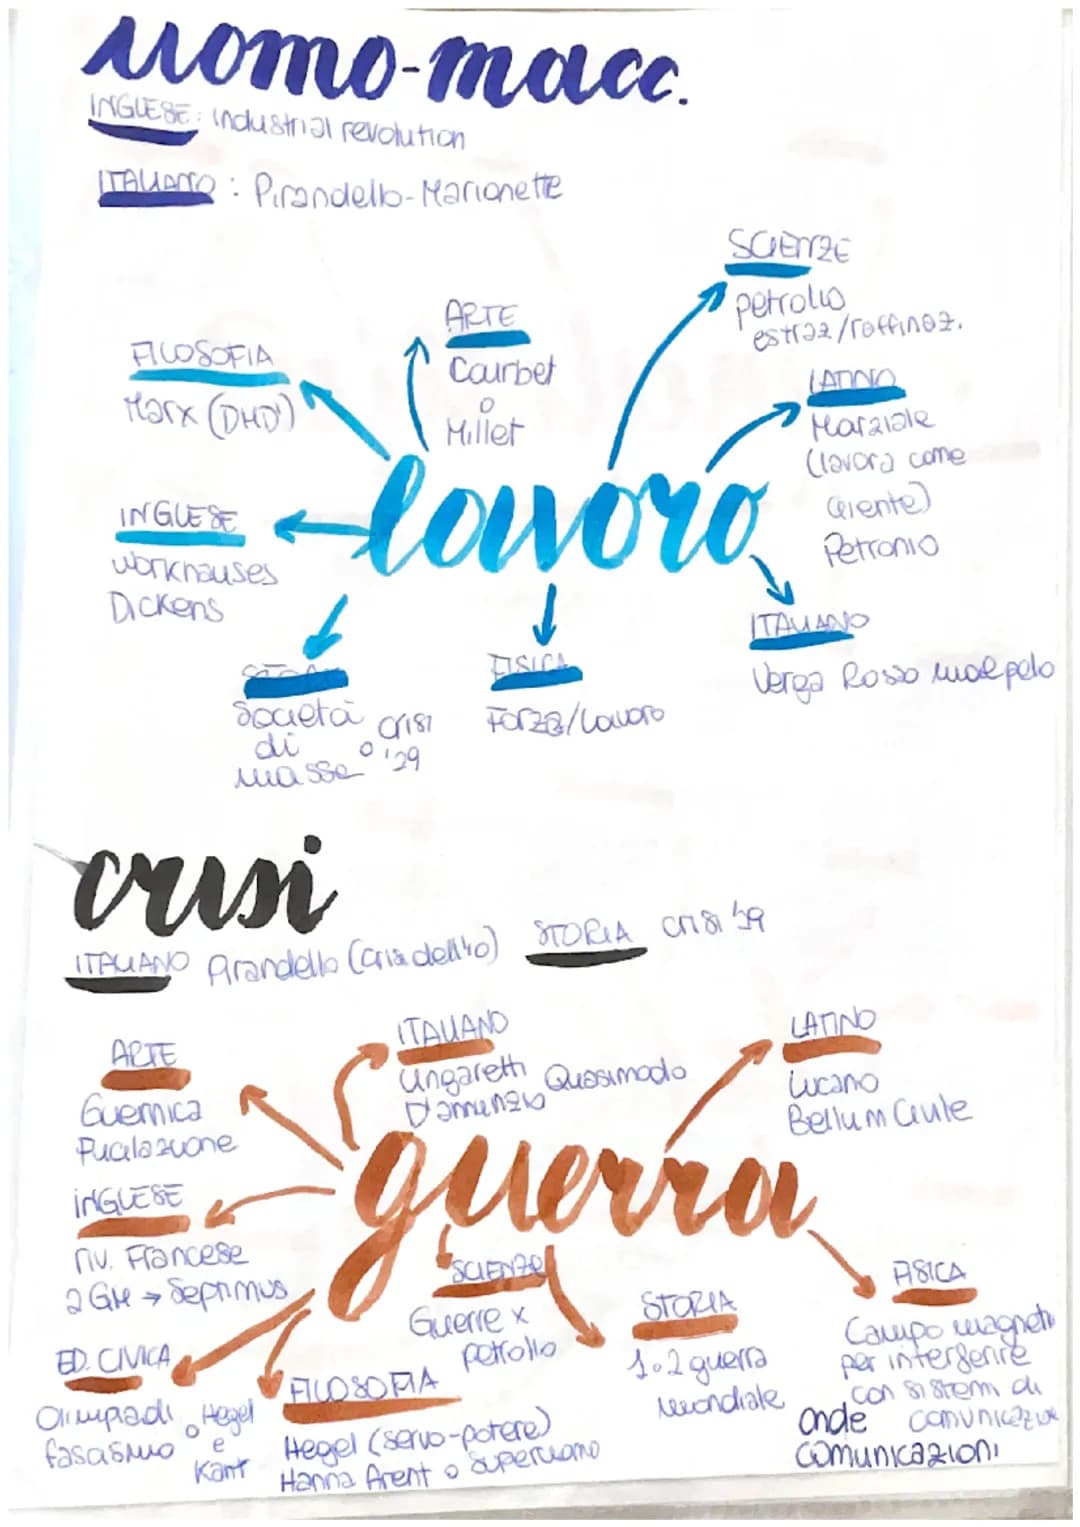 uomo-macc.
INGLESE: industrial revolution
ITALIANO: Pirandello-Marionette
SCIENZE
petrolio
estraz/raffinaz.
ARTE
Courbet
o
Millet
FILOSOFIA
Marx (DMD')
LATINO
Marziale
(lavora come
cliente)
Petronio
lavoro
INGLESE
workhauses
Dickens
ITALIANO
Verga Rosso malpelo
STORIA
Società
di
masse
o crisi
'29
FISICA
Forza/Lavoro
crisi
ITALIANO Pirandello (crisi dell'io)
STORIA crisi '29
ARTE
Guernica
Fucilazione
ITALIANO
Ungaretti Quasimodo
D'annunzio
LATINO
Lucano
Bellum Civile
guerra
INGLESE
riv. Francese
2 GM → Septimus
SCIENZE
Guerre x
petrolio
STORIA
1 o 2 guerra
mondiale
FISICA
Campo magneti
per interferire
con sistemi di
onde comunicazion
comunicazioni
ED. CIVICA
Olimpiadi
fascismo
o Hegel
e
Kant
FILOSOFIA
Hegel (servo-potere)
Hanna Arent o superuomo